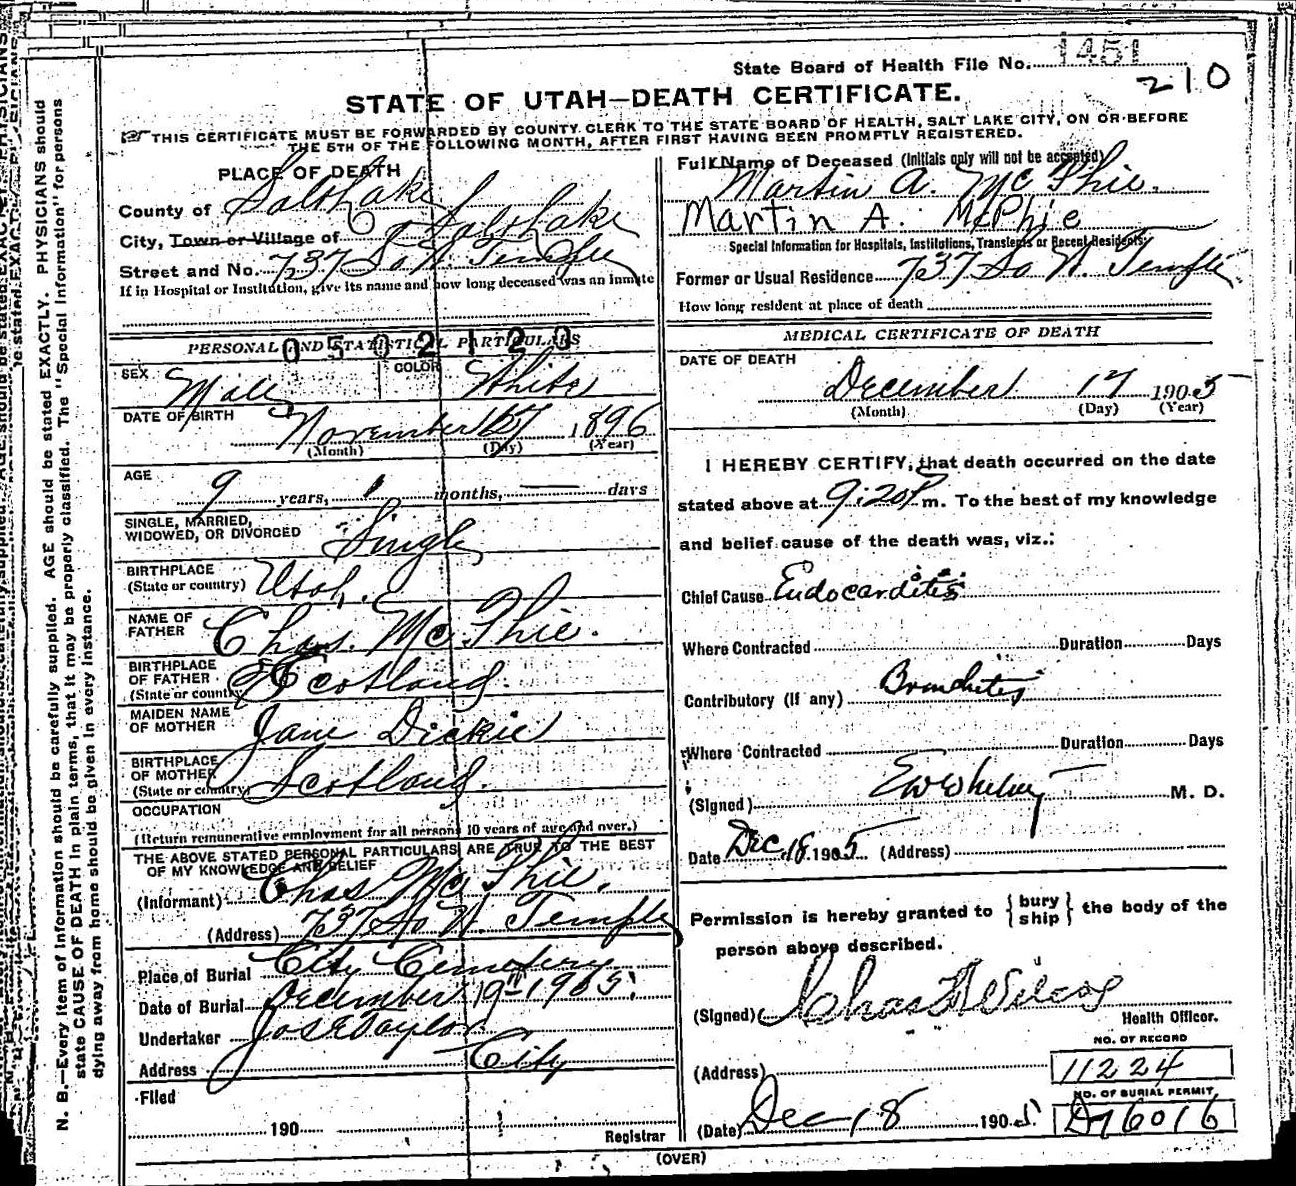 State Board of Health File No. 1451
210
STATE OF UTAH—DEATH CERTIFICATE.
THIS CERTIFICATE MUST BE FORWARDED BY COUNTY CLERK TO THE STATE BOARD OF HEALTH, SALT LAKE CITY, ON OR BEFORE
THE 5TH OF THE FOLLOWING MONTH, AFTER FIRST HAVING BEEN PROMPTLY REGISTERED.
PLACE OF DEATH
County of Salt Lake
City, Town or Village of Salt Lake
Street and No. 737 So W. Temple
If in Hospital or Institution, give its name and how long deceased was an inmate
0502120
PERSONAL AND STATISTICAL PARTICULARS
SEX Male COLOR White
DATE OF BIRTH November 1896
(Month) (Day) (Year)
AGE 9 years, 1 months, — days
SINGLE, MARRIED,
WIDOWED, OR DIVORCED Single
BIRTHPLACE
(State or country) Utah.
NAME OF
FATHER Chas. McPhie.
BIRTHPLACE
OF FATHER
(State or country) Scotland.
MAIDEN NAME
OF MOTHER Jane Dickie
BIRTHPLACE
OF MOTHER
(State or country) Scotland.
OCCUPATION
(Return remunerative employment for all persons 10 years of age and over.)
THE ABOVE STATED PERSONAL PARTICULARS ARE TRUE TO THE BEST
OF MY KNOWLEDGE AND BELIEF
(Informant) Chas McPhie.
(Address) 737 So W. Temple
Place of Burial City Cemetery
Date of Burial December 19th 1905.
Undertaker Jos E Taylor
Address City
Filed
190
Registrar
Full Name of Deceased (Initials only will not be accepted)
Martin A. McPhie.
Martin A. McPhie
Special Information for Hospitals, Institutions, Transients or Recent Residents.
Former or Usual Residence 737 So W. Temple
How long resident at place of death
MEDICAL CERTIFICATE OF DEATH
DATE OF DEATH
December 17 1905
(Month) (Day) (Year)
I HEREBY CERTIFY, that death occurred on the date
stated above at 9:20 P m. To the best of my knowledge
and belief cause of the death was, viz.:
Chief Cause Endocarditis
Where Contracted Duration Days
Contributory (if any) Bronchitis
Where Contracted Duration Days
(Signed) M. D.
Date Dec. 18 1905 (Address)
Permission is hereby granted to { bury ship } the body of the
person above described.
(Signed) Chas F Wilcox
Health Officer.
NO. OF RECORD
(Address) 11224
NO. OF BURIAL PERMIT
(Date) Dec 18 1905 D76016
(OVER)
N. B.—Every item of information should be carefully supplied. AGE should be stated EXACTLY. PHYSICIANS should
state CAUSE OF DEATH in plain terms, that it may be properly classified. The "Special Information" for persons
dying away from home should be given in every instance.